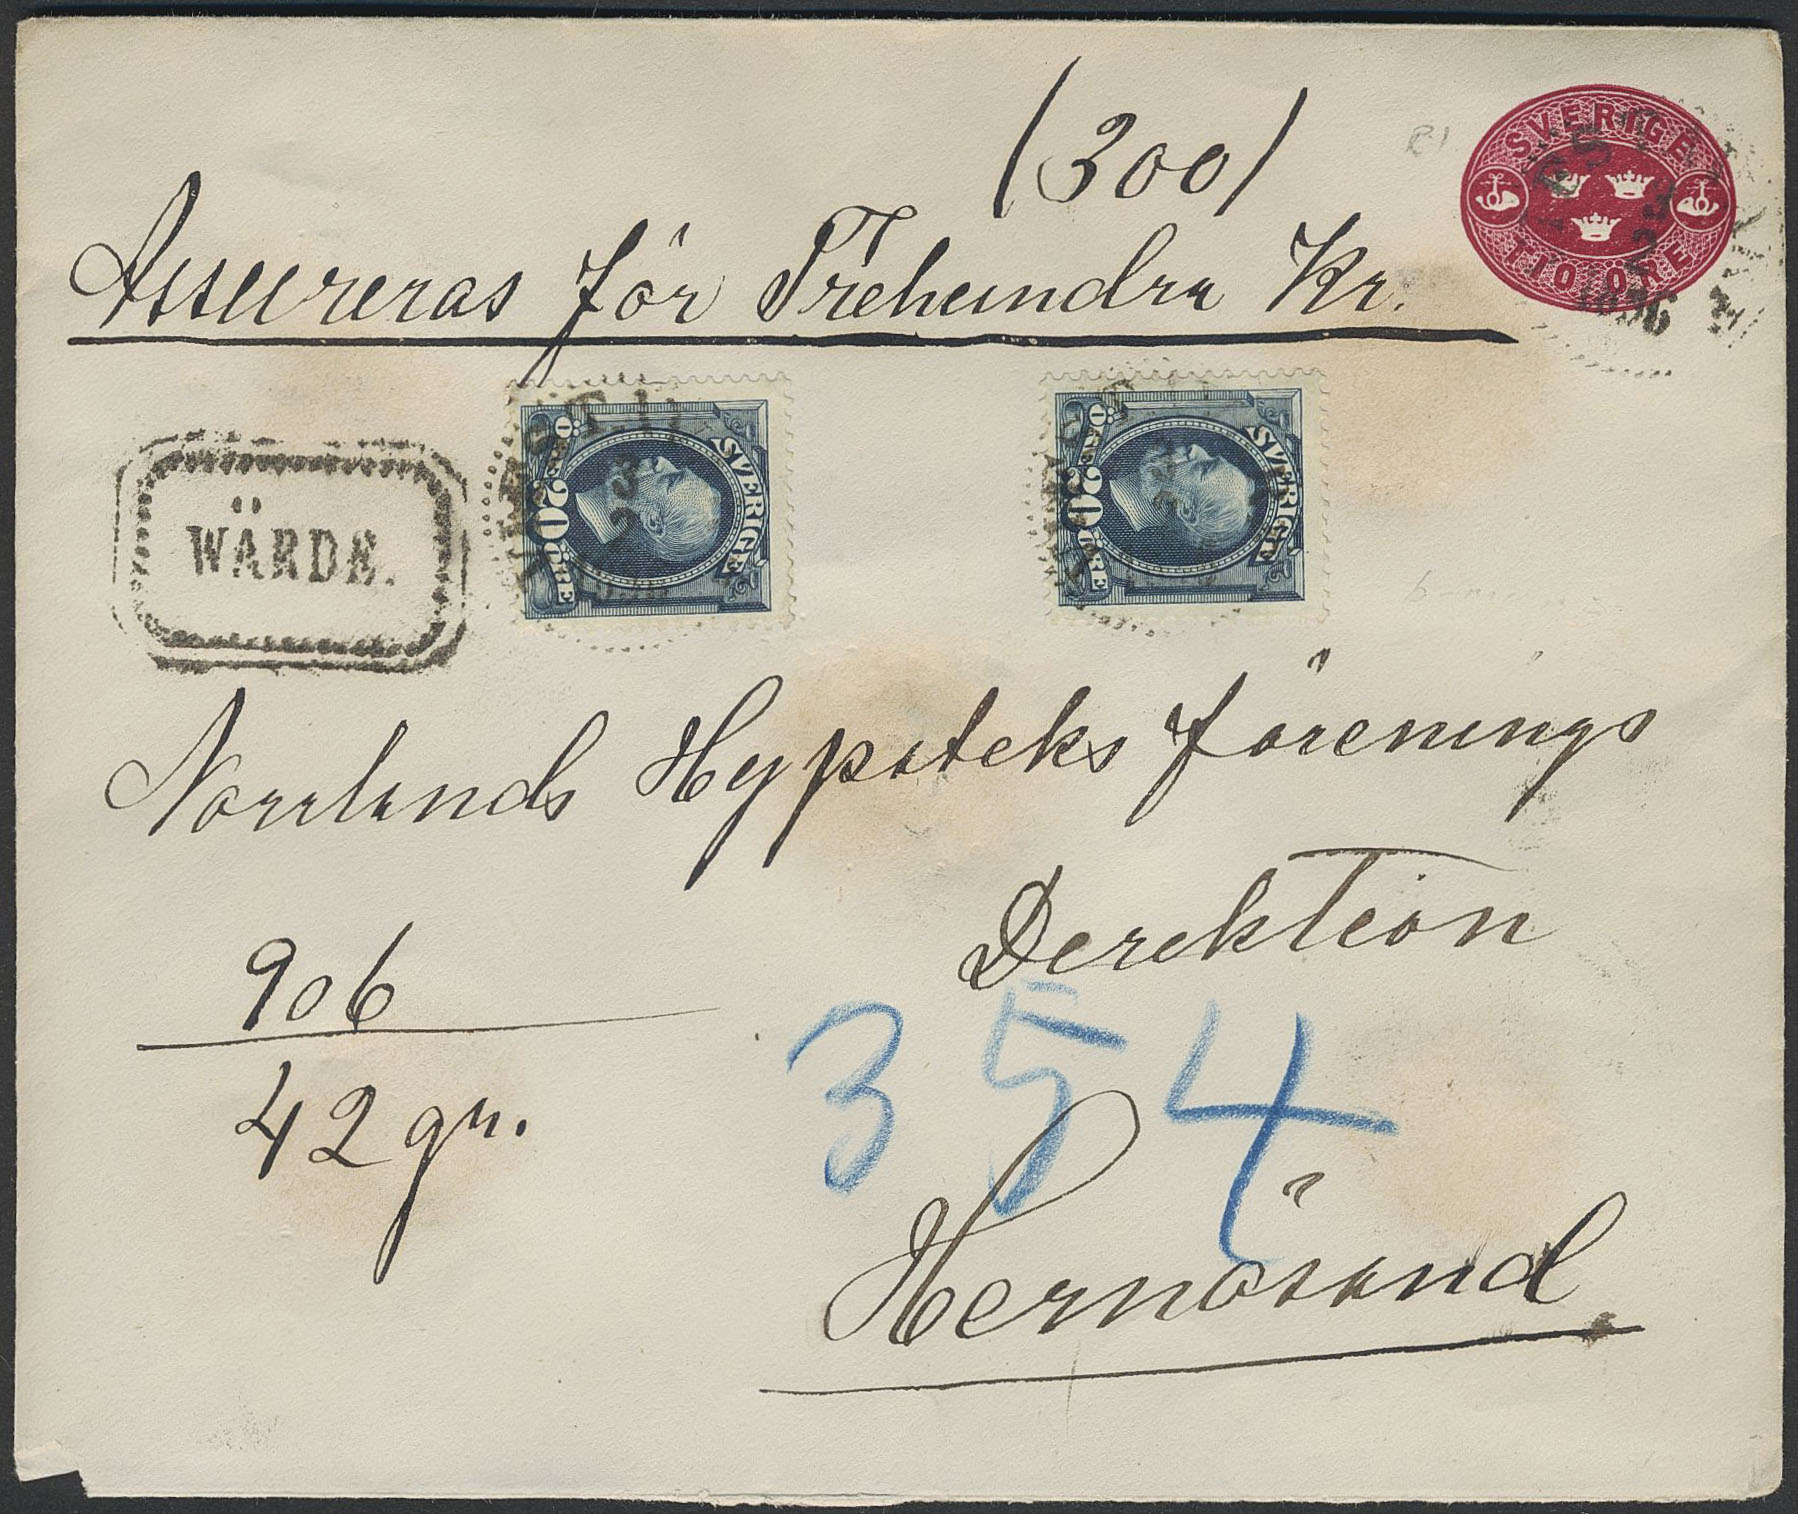 (300)
Assureras för Trehundra Kr.
SVERIGE
TIO ÖRE
1896
WÄRDE.
SVERIGE
20 ÖRE
SVERIGE
20 ÖRE
Norrlands Hypoteks förenings
Derektion
906
42 gr.
354
Hernösand